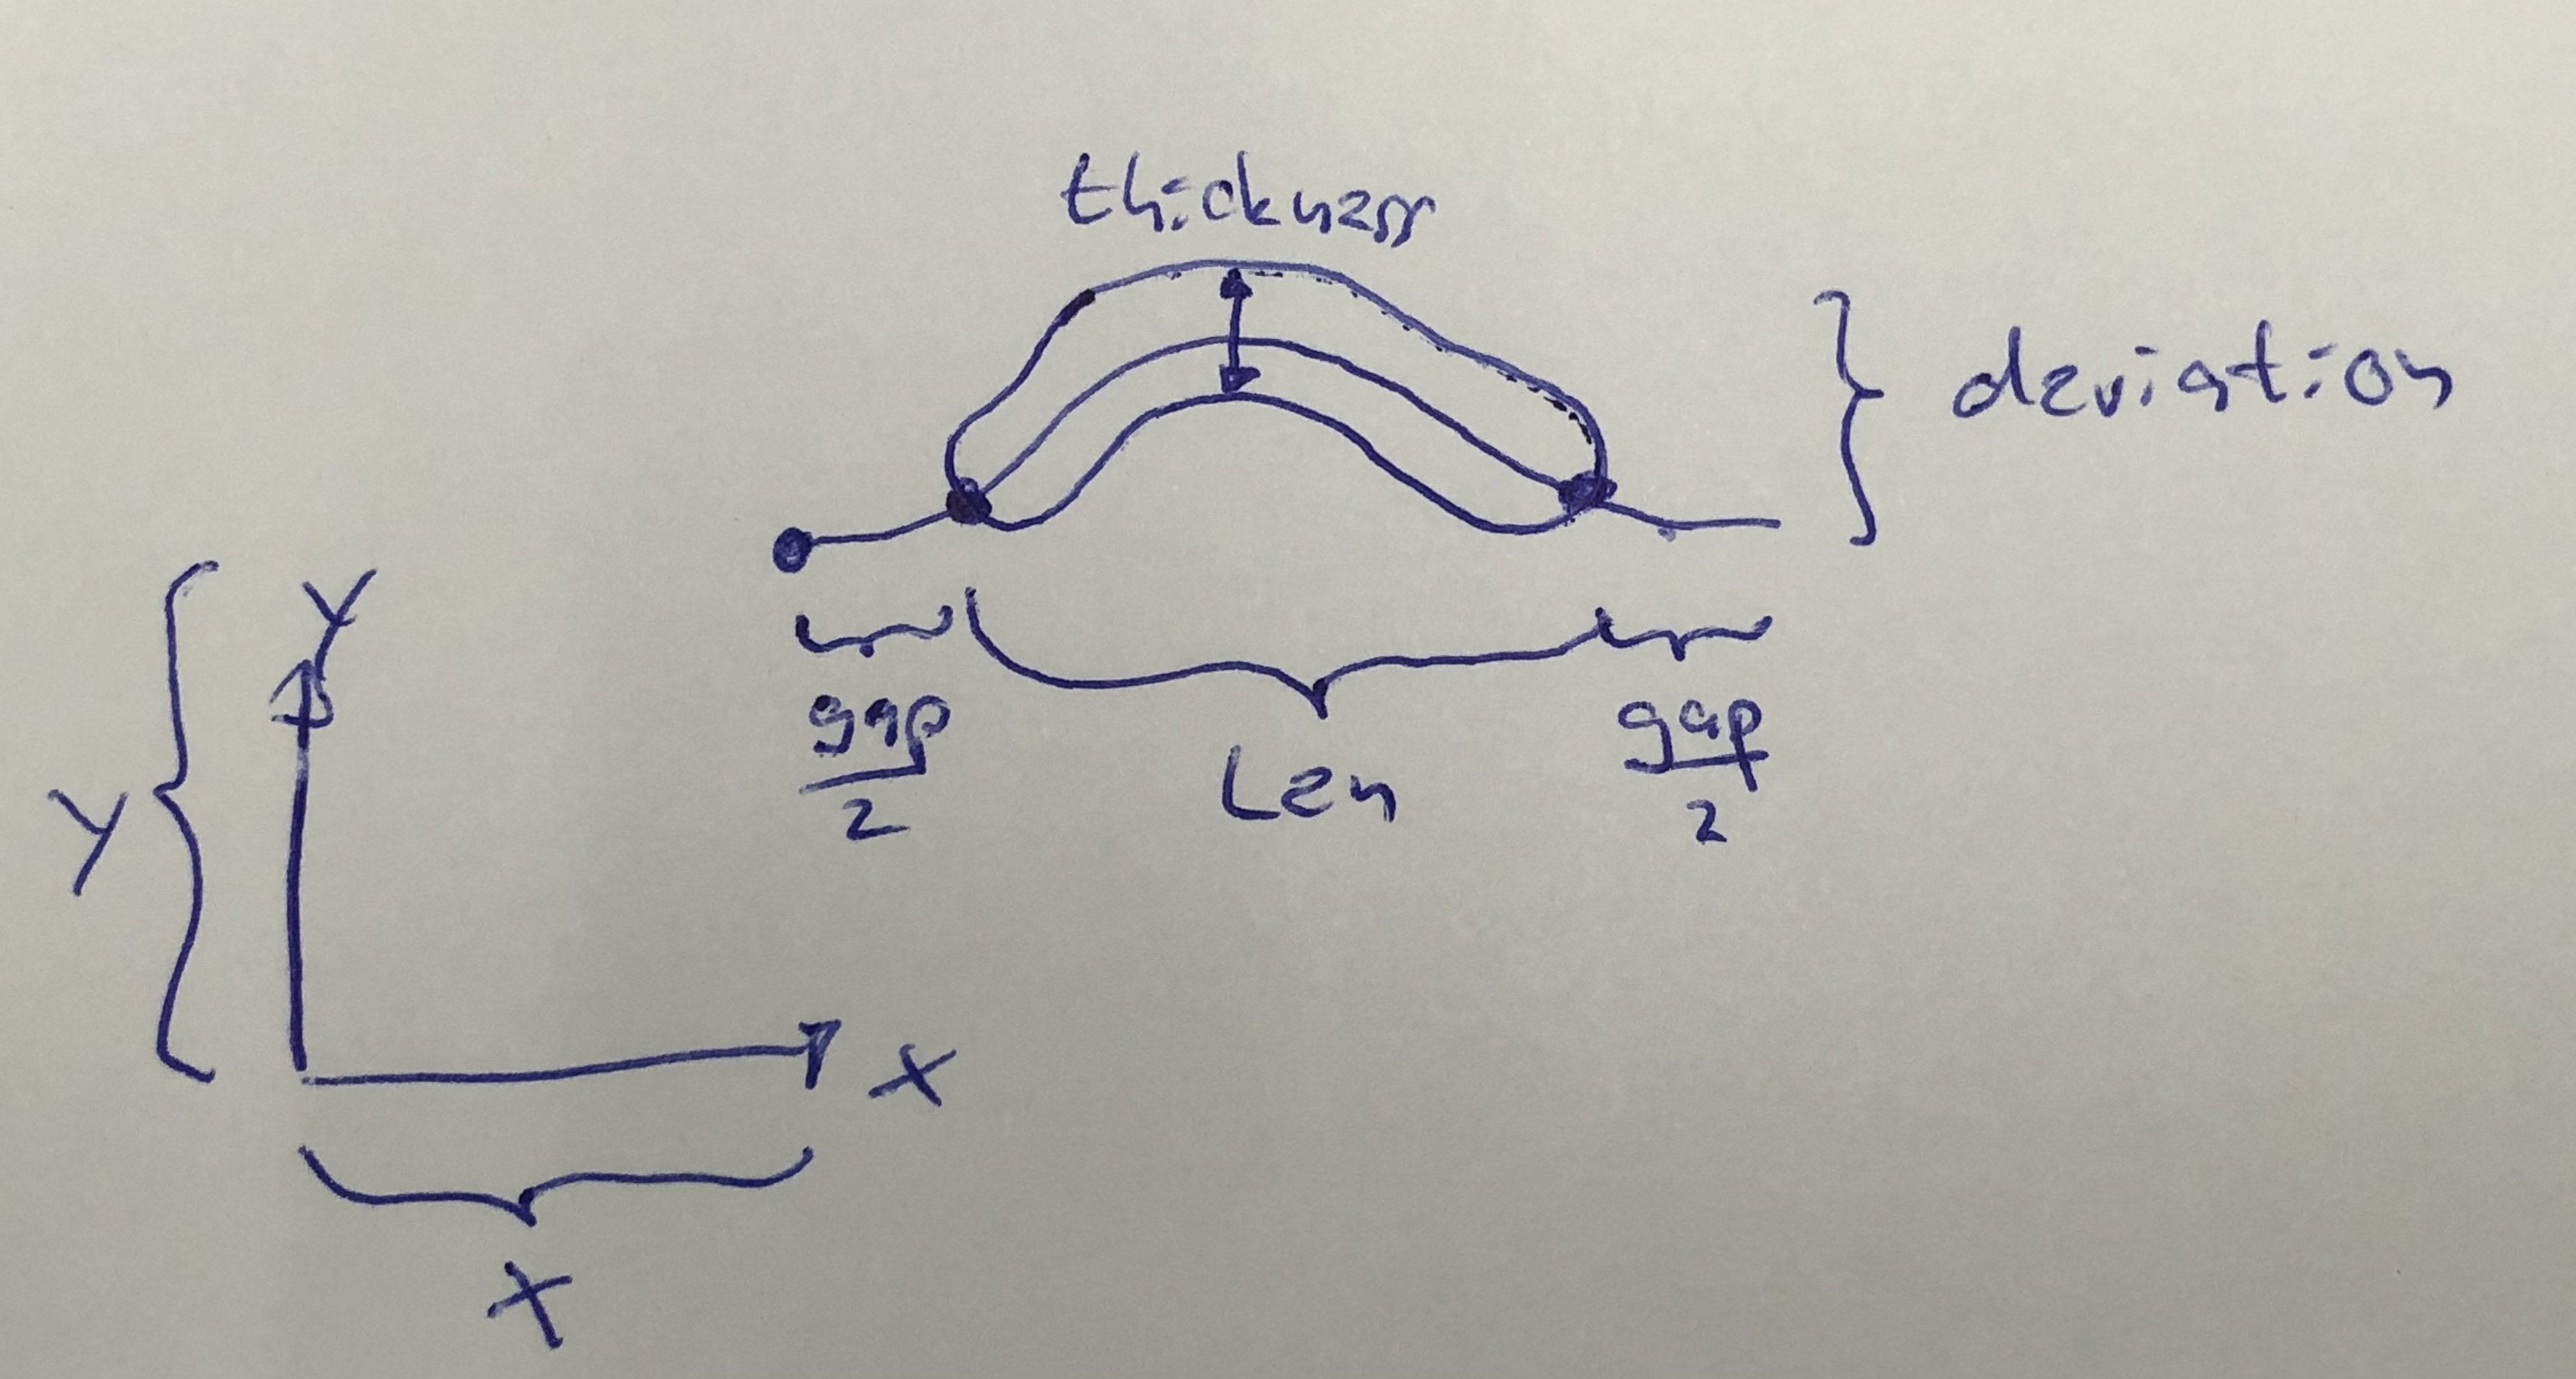 thickness
deviation
Y
gap
2
Len
gap
2
Y
X
X